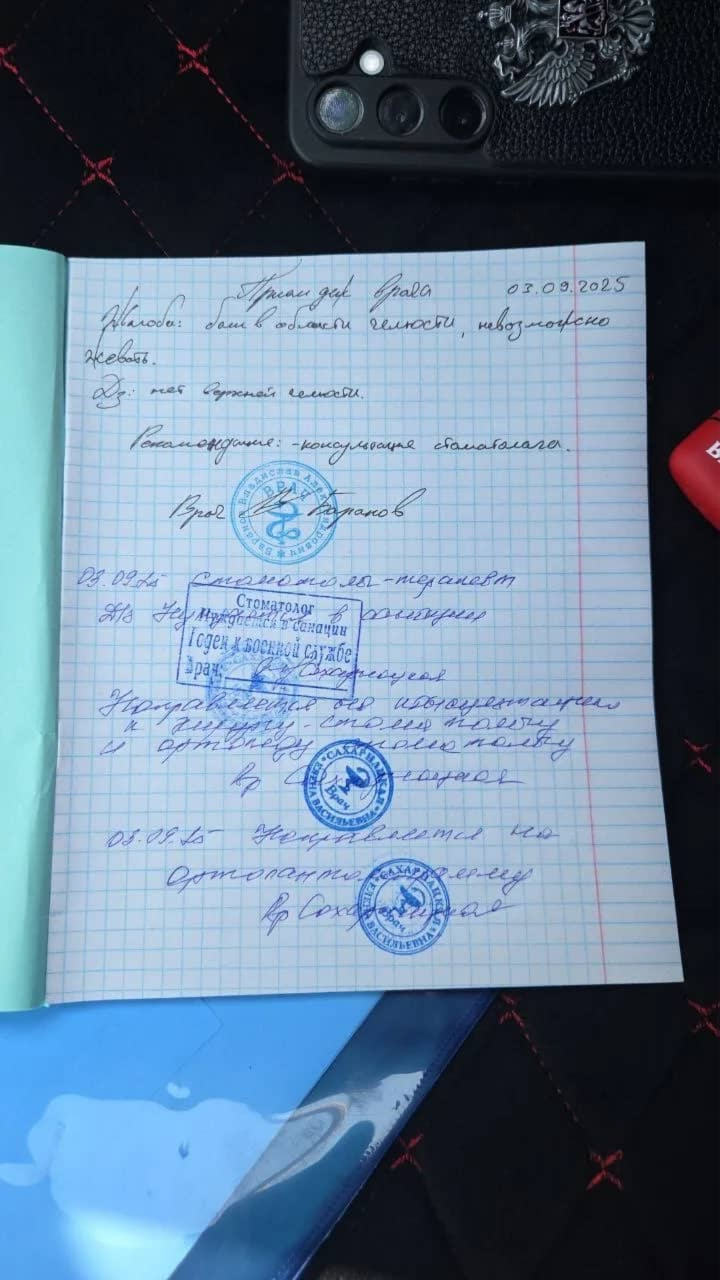 Прием деж врача 03.09.2025
Жалоба: боли в области челюсти, невозможно
жевать.
Дз: нет верхней челюсти.
Рекомендация: -консультация стоматолога.
Врач Баранов
Баранов Владислав Александрович * ВРАЧ
03.09.25 Стоматолог-терапевт
Д/з Нуждается в санации
Стоматолог
Нуждается в санации
Годен к военной службе
Врач: Сахарнацкая
Направляется на
к хирургу-стоматологу
и ортопеду стоматологу
Вр Сахарнацкая
САХАРНАЦКАЯ ВАСИЛЬЕВНА Врач
03.09.25 Направляется на
ортопантомограмму
Вр Сахарнацкая
САХАРНАЦКАЯ ВАСИЛЬЕВНА Врач